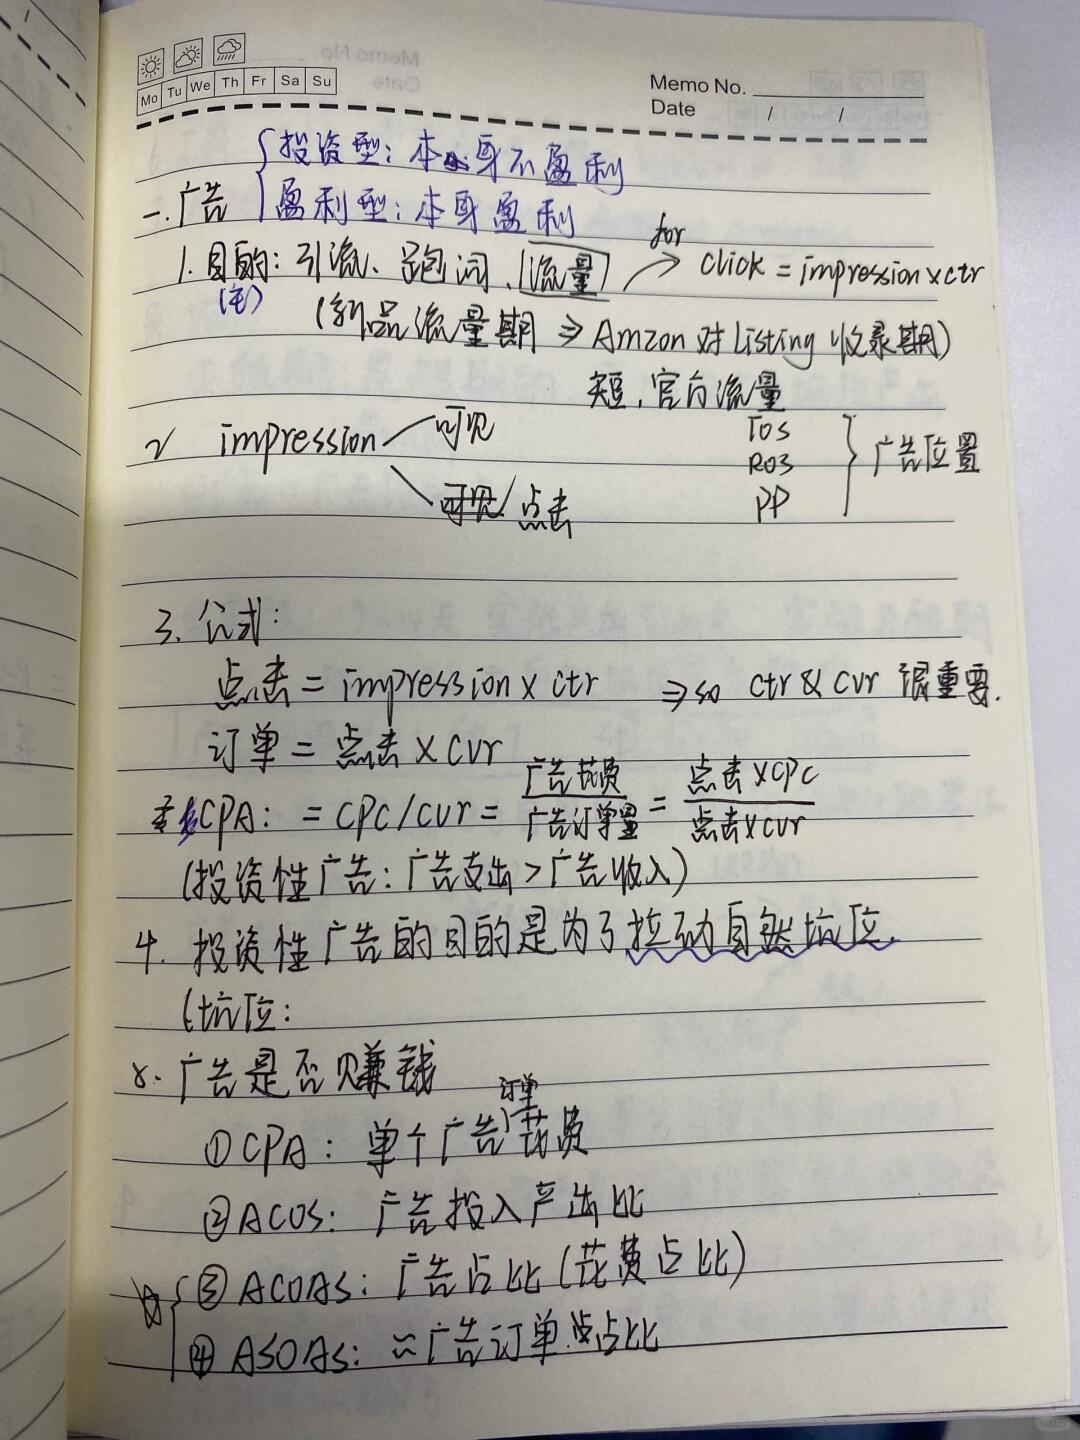 Mo Tu We Th Fr Sa Su
Memo No.
Date / /
投资型：本身不盈利
一.广告
盈利型：本身盈利
1.目的：引流、跑词、流量 for click = impression x ctr
(主)
(新品流量期 ⇒ Amzon 对 Listing 收录期)
短,官方流量
2 impression 可见 TOS
ROS 广告位置
可见/点击 PP
3. 公式：
点击 = impression x ctr ⇒ so ctr & cvr 很重要.
订单 = 点击 x cvr
CPA: = CPC/cvr = 广告花费/广告订单量 = 点击 x CPC/点击 x cvr
(投资性广告：广告支出 > 广告收入)
4. 投资性广告的目的是为了拉动自然坑位.
(坑位：
广告是否赚钱
①CPA：单个广告订单花费
②ACOS：广告投入产出比
③ACOAS：广告占比(花费占比)
④ASOAS：≈广告订单占比